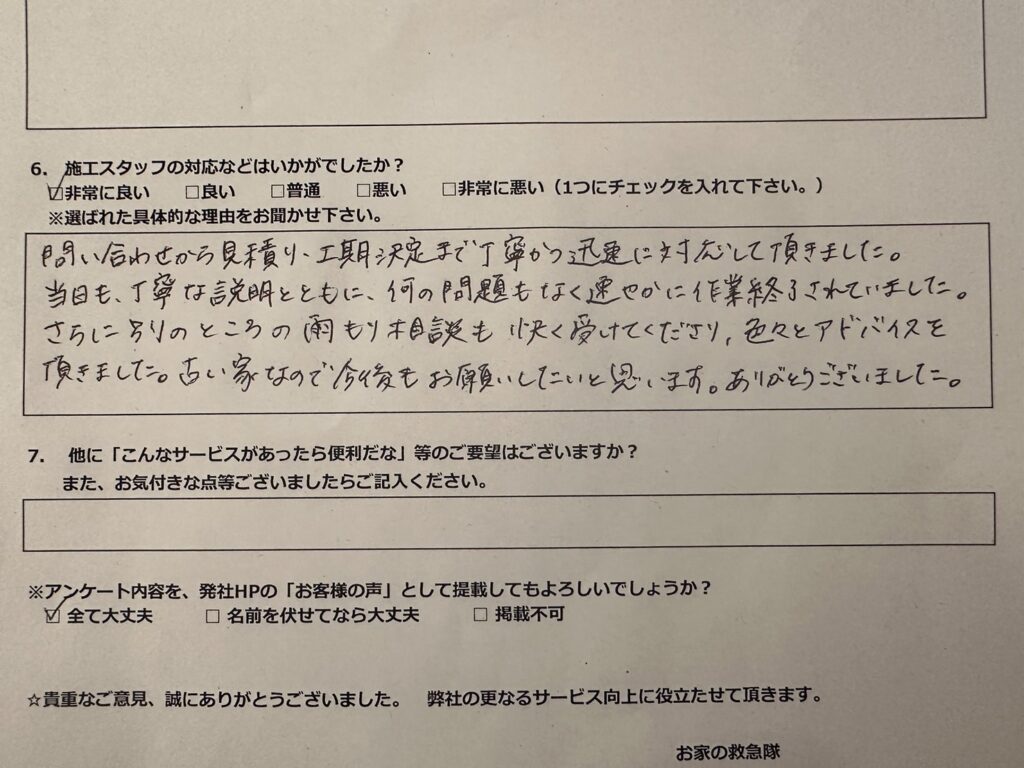 6. 施工スタッフの対応などはいかがでしたか？
☑非常に良い □良い □普通 □悪い □非常に悪い（1つにチェックを入れて下さい。）
※選ばれた具体的な理由をお聞かせ下さい。
問い合わせから見積り、工期決定まで丁寧かつ迅速に対応して頂きました。
当日も、丁寧な説明とともに、何の問題もなく速やかに作業終了されていました。
さらに別のところの雨もり相談も快く受けてくださり，色々とアドバイスを
頂きました。古い家なので今後もお願いしたいと思います。ありがとうございました。
7. 他に「こんなサービスがあったら便利だな」等のご要望はございますか？
また、お気付きな点等ございましたらご記入ください。
※アンケート内容を、発社HPの「お客様の声」として提載してもよろしいでしょうか？
☑ 全て大丈夫 □ 名前を伏せてなら大丈夫 □ 掲載不可
☆貴重なご意見、誠にありがとうございました。 弊社の更なるサービス向上に役立たせて頂きます。
お家の救急隊